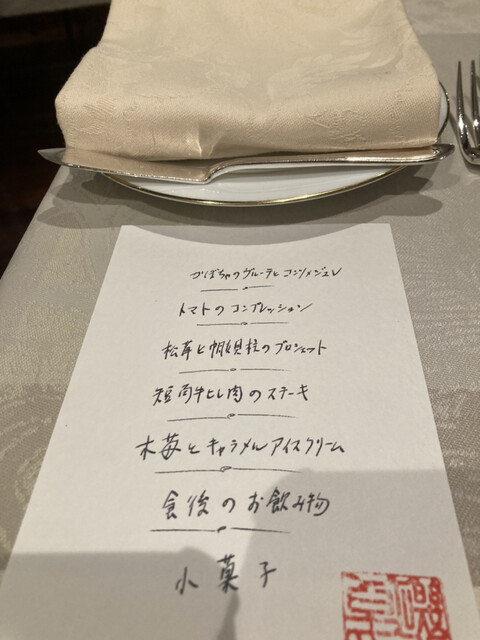 かぼちゃのヴルーテとコンソメジュレ
トマトのコンプレッション
松茸と帆立貝柱のブロシェット
短角牛ヒレ肉のステーキ
木苺とキャラメルアイスクリーム
食後のお飲み物
小菓子